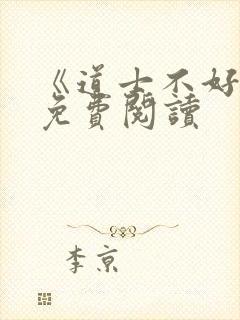 《道士不好
免費閱讀
李京